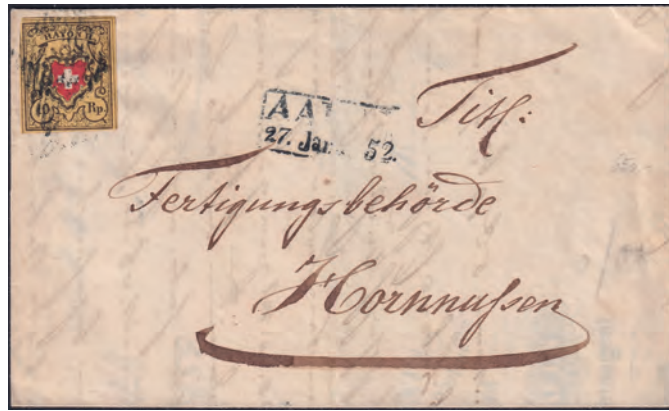 RAYON II
10 Rp.
AA
27. Jan. 52.
Titl:
Fertigungsbehörde
Hornnußen